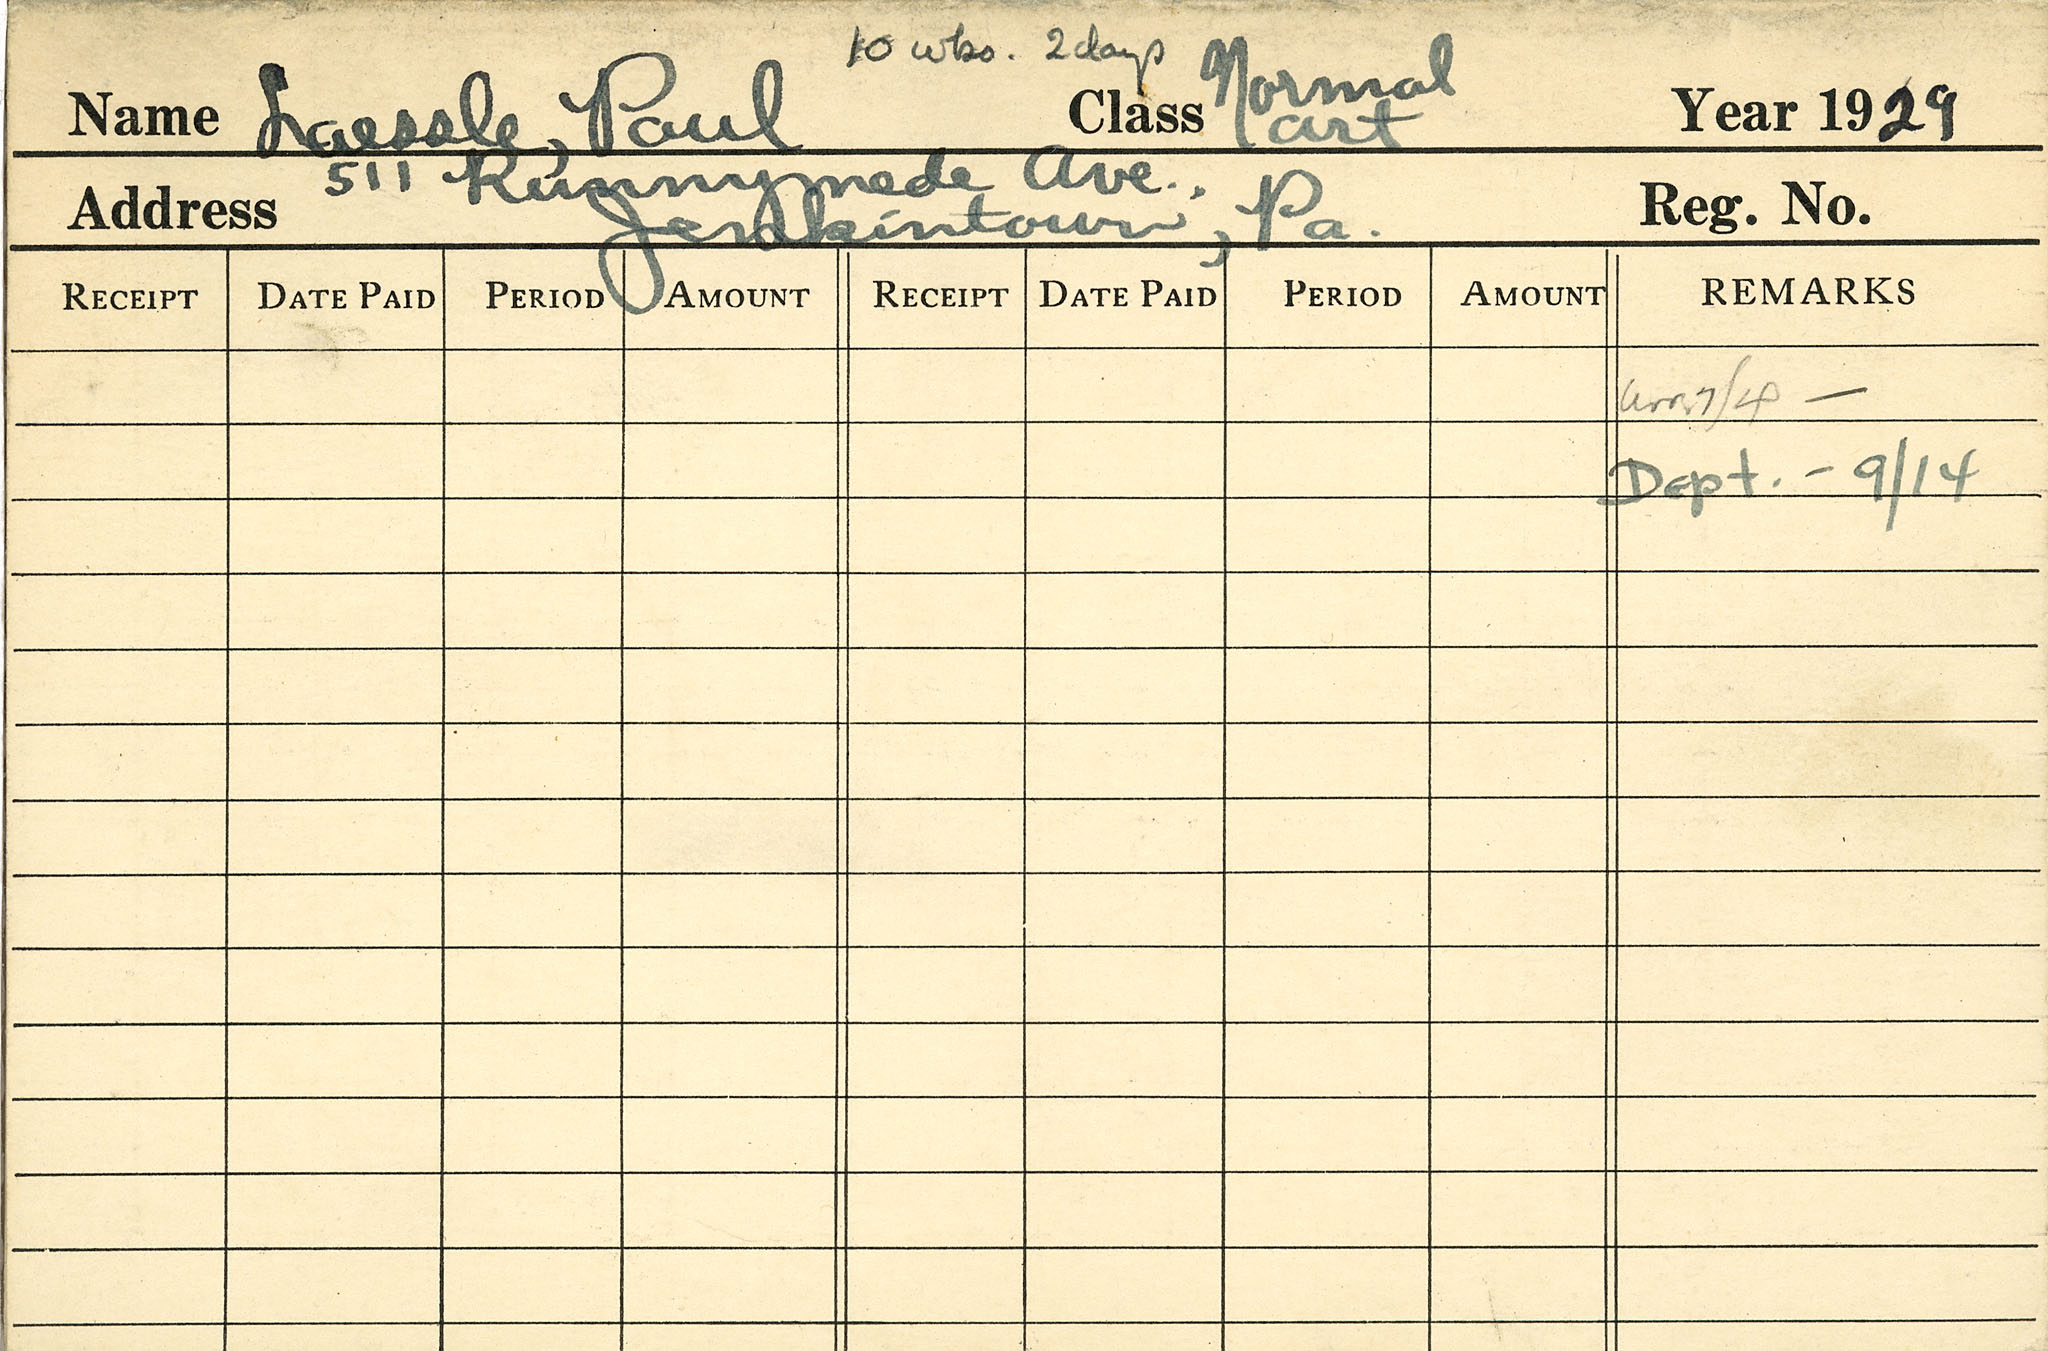 10 wks. 2 days
Name Laessle, Paul Class Normal Art Year 1929
Address 511 Runnymede Ave.,
Jenkintown, Pa. Reg. No.
RECEIPT DATE PAID PERIOD AMOUNT RECEIPT DATE PAID PERIOD AMOUNT REMARKS
Arr. 7/4 —
Dept. - 9/14